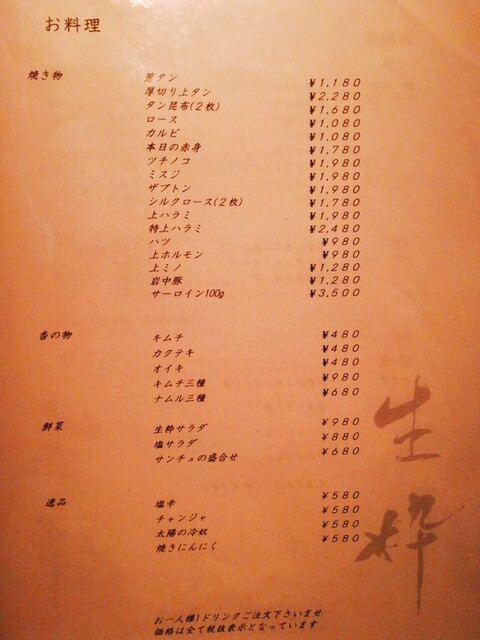 お料理
焼き物
葱タン ￥1,180
厚切り上タン ￥2,280
タン昆布(2枚) ￥1,680
ロース ￥1,080
カルビ ￥1,080
本日の赤身 ￥1,780
ツチノコ ￥1,980
ミスジ ￥1,980
ザブトン ￥1,980
シルクロース(2枚) ￥1,780
上ハラミ ￥1,980
特上ハラミ ￥2,480
ハツ ￥980
上ホルモン ￥980
上ミノ ￥1,280
岩中豚 ￥1,280
サーロイン100g ￥3,500
香の物
キムチ ￥480
カクテキ ￥480
オイキ ￥480
キムチ三種 ￥980
ナムル三種 ￥680
鮮菜
生粋サラダ ￥980
塩サラダ ￥880
サンチュの盛合せ ￥680
逸品
塩辛 ￥580
チャンジャ ￥580
太陽の冷奴 ￥580
焼きにんにく ￥580
生粋
お一人様1ドリンクご注文下さいませ
価格は全て税抜表示となっています